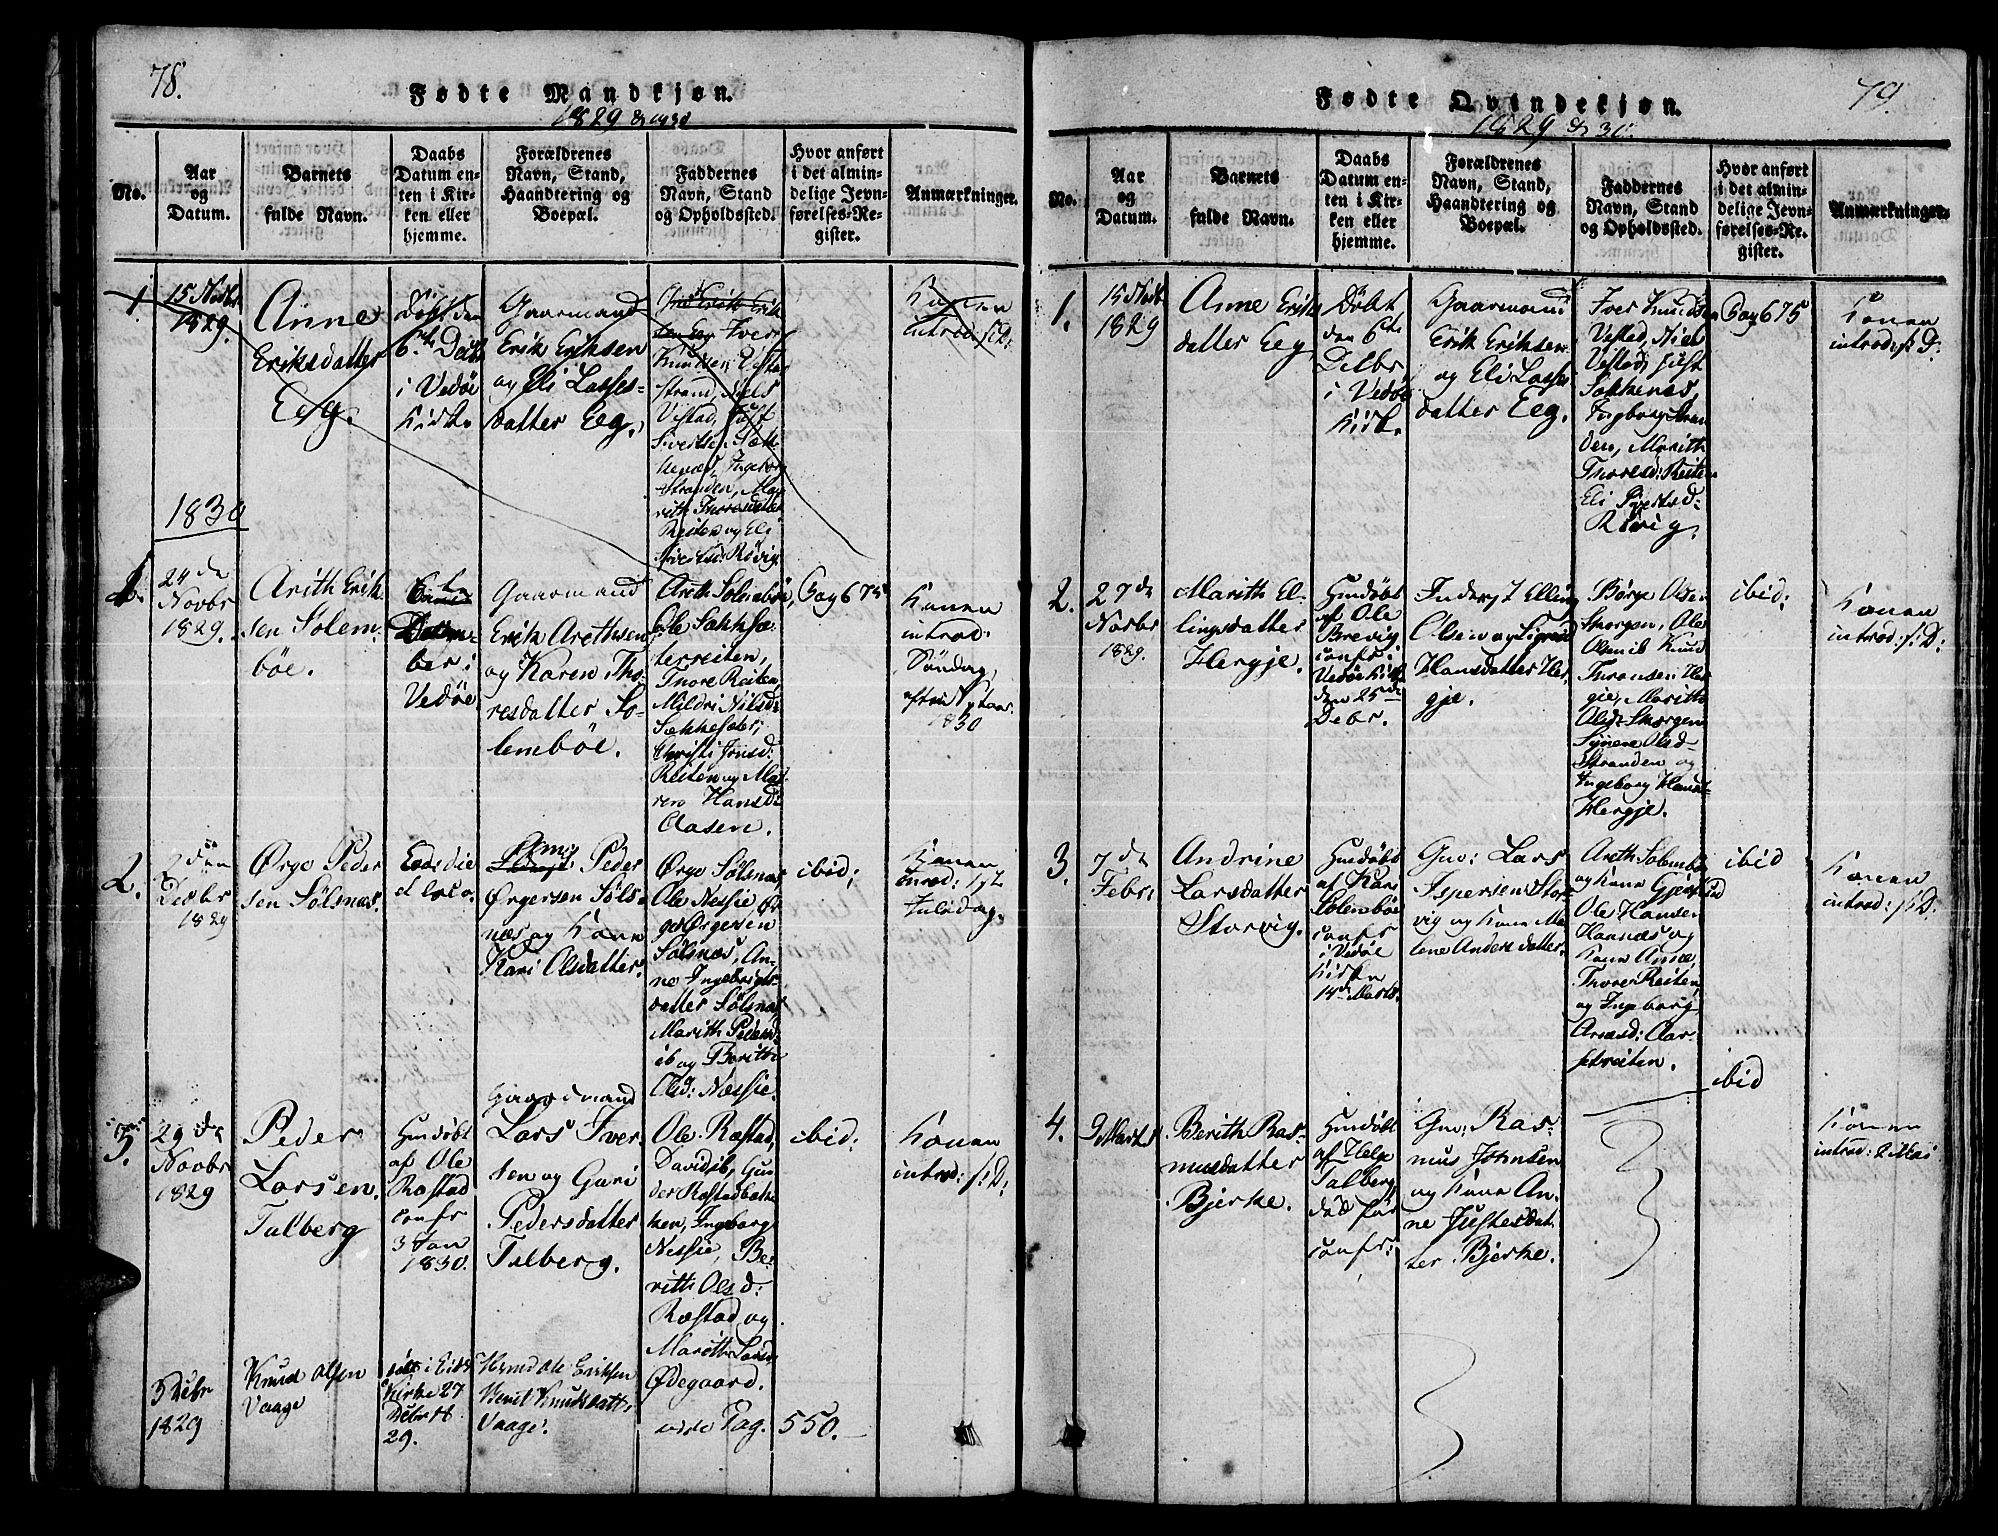 78.
Fødte Mandkjøn.
1829 & 1830
No.
Aar
og
Datum.
Barnets
fulde Navn.
Daabs
Datum en-
ten i Kir-
ken eller
hjemme.
Forældrenes
Navn, Stand,
Haandtering og
Boepæl.
Faddernes
Navn, Stand
og Opholdssted.
Hvor anført
i det almin-
delige Jevn-
førelses-Re-
gister.
Anmærkninger.
1.
15 Novbr
1829.
Anne
Eriksdatter
Eeg.
Døbt den
6te Decbr
i Vedøe
Kirke
Gaarmand
Erik Eriksen
og Eli Lasses-
datter Eeg.
Iver
Knudsen Vestad
Strand, Niels
Vestad, Just
Sivertsen Sæk-
kenæs, Ingeborg
Stranden, Ma-
rith Thoresdatter
Reiten og Eli
Sivertsd: Røvig.
Konen
introd: s: D:
1830
1.
24de
Novbr
1829.
Arith Erik-
sen Solem-
bøe.
ber i
Vedøe
Gaarmand
Erik Arethsen
og Karen Tho-
resdatter So-
lembøe.
Areth Solembøe,
Ole Sækkesæ-
terreiten,
Thore Reiten,
Mildri Nilsd:
Sækkesæter,
Christi Jonsd:
Reiten og Ma-
ren Hansd:
Aasen.
Pag 675
Konen
introd:
Søndag
efter Nytaar
1830
2.
2den
Decbr
1829
Ørge Peder
sen Sølsnæs.
Eodem die
et loco.
Gmd Peder
Ørgersen Søls-
næs og Kone
Kari Olsdatter.
Ørge Sølsnæs,
Ole Nessie, Ør-
ger Ørgersen
Sølsnæs, An-
ne Ingebrigts-
datter Sølsnæs,
Marith Pedersd:
ib og Berithe
Olsd: Nessie.
ibid;
Konen
introd: 1st
Juledag.
3.
29de
Novbr
1829
Peder
Larsen
Talberg
Hiemdøbt
af Ole
Røstad
confr
3 Jan
1830.
Gaardmand
Lars Iver
sen og Guri
Pedersdatter
Talberg.
Ole Røstad,
David ib, Gun-
der Røstadbakken,
Ingeborg
Nessie, Be-
rith Olsd:
Røstad og
Marith Larsd:
Ødegaard.
ibid:
Konen
introd: s: D:
5 Decbr
1829
Knud Olsen
Vaage
døbt i Eids
Kirke 27
Decbr
29.
Husmd Ole Eriksen
Berit Knudsdatter
Vaage.
vide Pag. 550.
79.
Fødte Qvindekjøn.
1829 & 30.
No.
Aar
og
Datum.
Barnets
fulde Navn.
Daabs
Datum en-
ten i Kir-
ken eller
hjemme.
Forældrenes
Navn, Stand,
Haandtering og
Boepæl.
Faddernes
Navn, Stand
og Opholdssted.
Hvor anført
i det almin-
delige Jevn-
førelses-Re-
gister.
Anmærkninger.
1.
15 Novbr
1829
Anne Eriks
datter Eeg
Døbt
den 6te
Decbr
i Vedøe
Kirk.
Gaarmand
Erik Eriksen
og Eli Lasses-
datter Eeg.
Iver Knudsen
Vestad, Niels
Vestad, Just
Sækkenæs,
Ingborg Stran
den, Marith
Thoresd: Reiten
Eli Sivertsd:
Røvig.
Pag 675
Konen
introd: s: D:
2.
27de
Novbr
1829.
Marith El-
lingsdatter
Hergje.
Hiemdøbt
af Ole
Brevig
confr i
Vedøe Kirke
den 25de
Decbr.
Inderst Elling
Olsen og Sigrid
Hansdatter Her-
gje.
Børge Olsen
Skorgen, Ole
Olsen ib Knud
Thoresen Her-
gje, Marith
Olsd: Skorgen
Synere Olsd-
Stranden og
Ingeborg Hansd:
Hergje.
ibid:
Konen
introd: s: D:
3.
7de
Febr:
Andrine
Larsdatter
Storvig.
Hiemdøbt
af Kari
Solembøe
confr
i Vedøe
Kirke
14de Marts.
Gm: Lars
Ispersen Stor-
vig og Kone Ma-
lene Andersdatter.
Areth Solembøe
og Kone
Ole Hansen
Haanæs og
Kone Anne,
Thore Reiten,
og Ingeborg
Arnesd: Aar-
setreiten.
ibid
Konen
introd: s: D:
ibid
4.
Marts
Berith Ras-
musdatter
Bjerke.
Hiemdøbt
af Helge
Talberg
død før
confr:
Gm: Ras-
mus Johnsen
og Kone An-
ne Justesdat-
ter Bjerke.
Konen
introd: 2 Mai